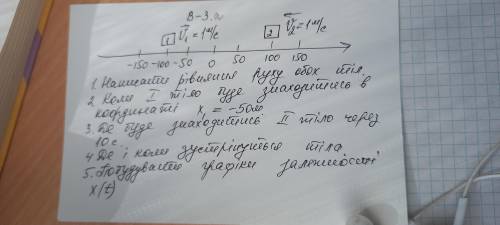 В-3.а
1 V₁ = 1 м/с 2 V₂ = 1 м/с
-150 -100 -50 0 50 100 150
1. Написати рівняння руху обох тіл.
2. Коли І тіло буде знаходитись в
координаті x₁ = -50м
3. Де буде знаходитись ІІ тіло через
10 с.
4. Де і коли зустрінуться тіла
5. Побудувати графіки залежності
x(t)